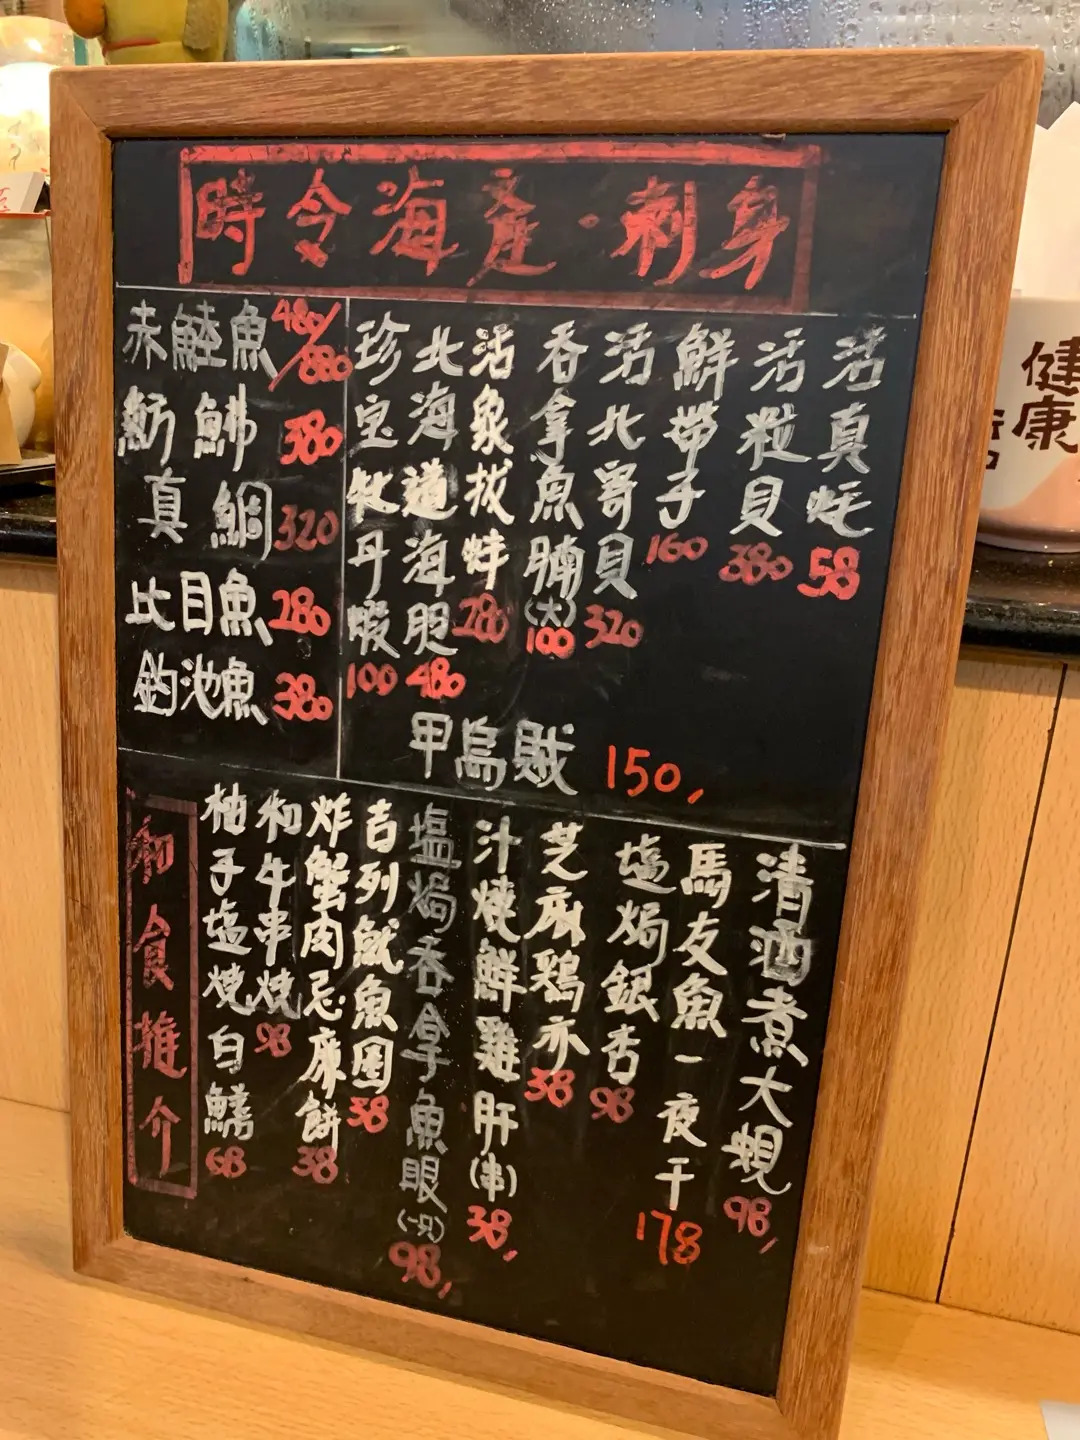 時令海產·刺身
赤鯥魚 480/880
魴鮄 380
真鯛 320
比目魚 280
釣池魚 380
活真蚝 58
活粒貝 380
鮮帶子 160
活北寄貝 320
吞拿魚腩(大) 100
活象拔蚌 280
北海道海胆 480
珍宝牡丹蝦 100
甲烏賊 150,
和食推介
清酒煮大蜆 98,
馬友魚一夜干 178
塩焗銀杏 98
芝麻鶏亦 38
汁燒鮮雞肝(串) 38,
塩焗吞拿魚眼(一只) 98,
吉列魷魚圈 38
炸蟹肉忌廉餅 38
和牛串燒 98
柚子塩燒白鱚 68
健康